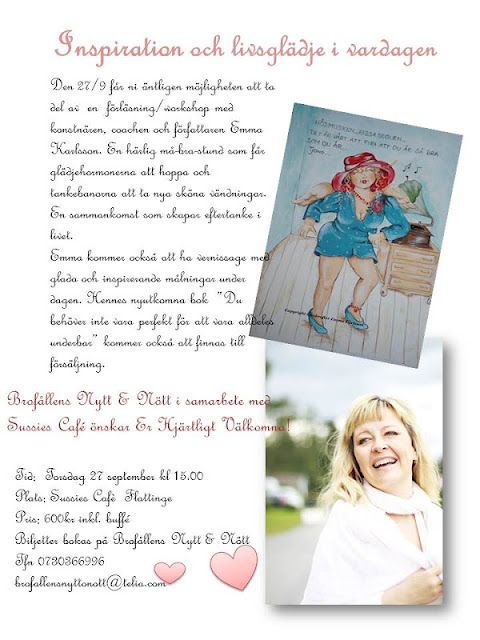 Inspiration och livsglädje i vardagen
Den 27/9 får ni äntligen möjligheten att ta
del av en förläsning/workshop med
konstnären, coachen och författaren Emma
Karlsson. En härlig må-bra-stund som får
glädjehormonerna att hoppa och
tankebanorna att ta nya sköna vändningar.
En sammankomst som skapar eftertanke i
livet.
Emma kommer också att ha vernissage med
glada och inspirerande målningar under
dagen. Hennes nyutkomna bok "Du
behöver inte vara perfekt för att vara alldeles
underbar" kommer också att finnas till
försäljning.
SOM DU ÄR.
Brofållens Nytt & Nött i samarbete med
Sussies Café önskar Er Hjärtligt Välkomna!
Tid; Torsdag 27 september kl 15.00
Plats; Sussies Café Flattinge
Pris; 600kr inkl. buffé
Biljetter bokas på Brofållens Nytt & Nött
Tfn 0730366996
brofallensnyttonott@telia.com